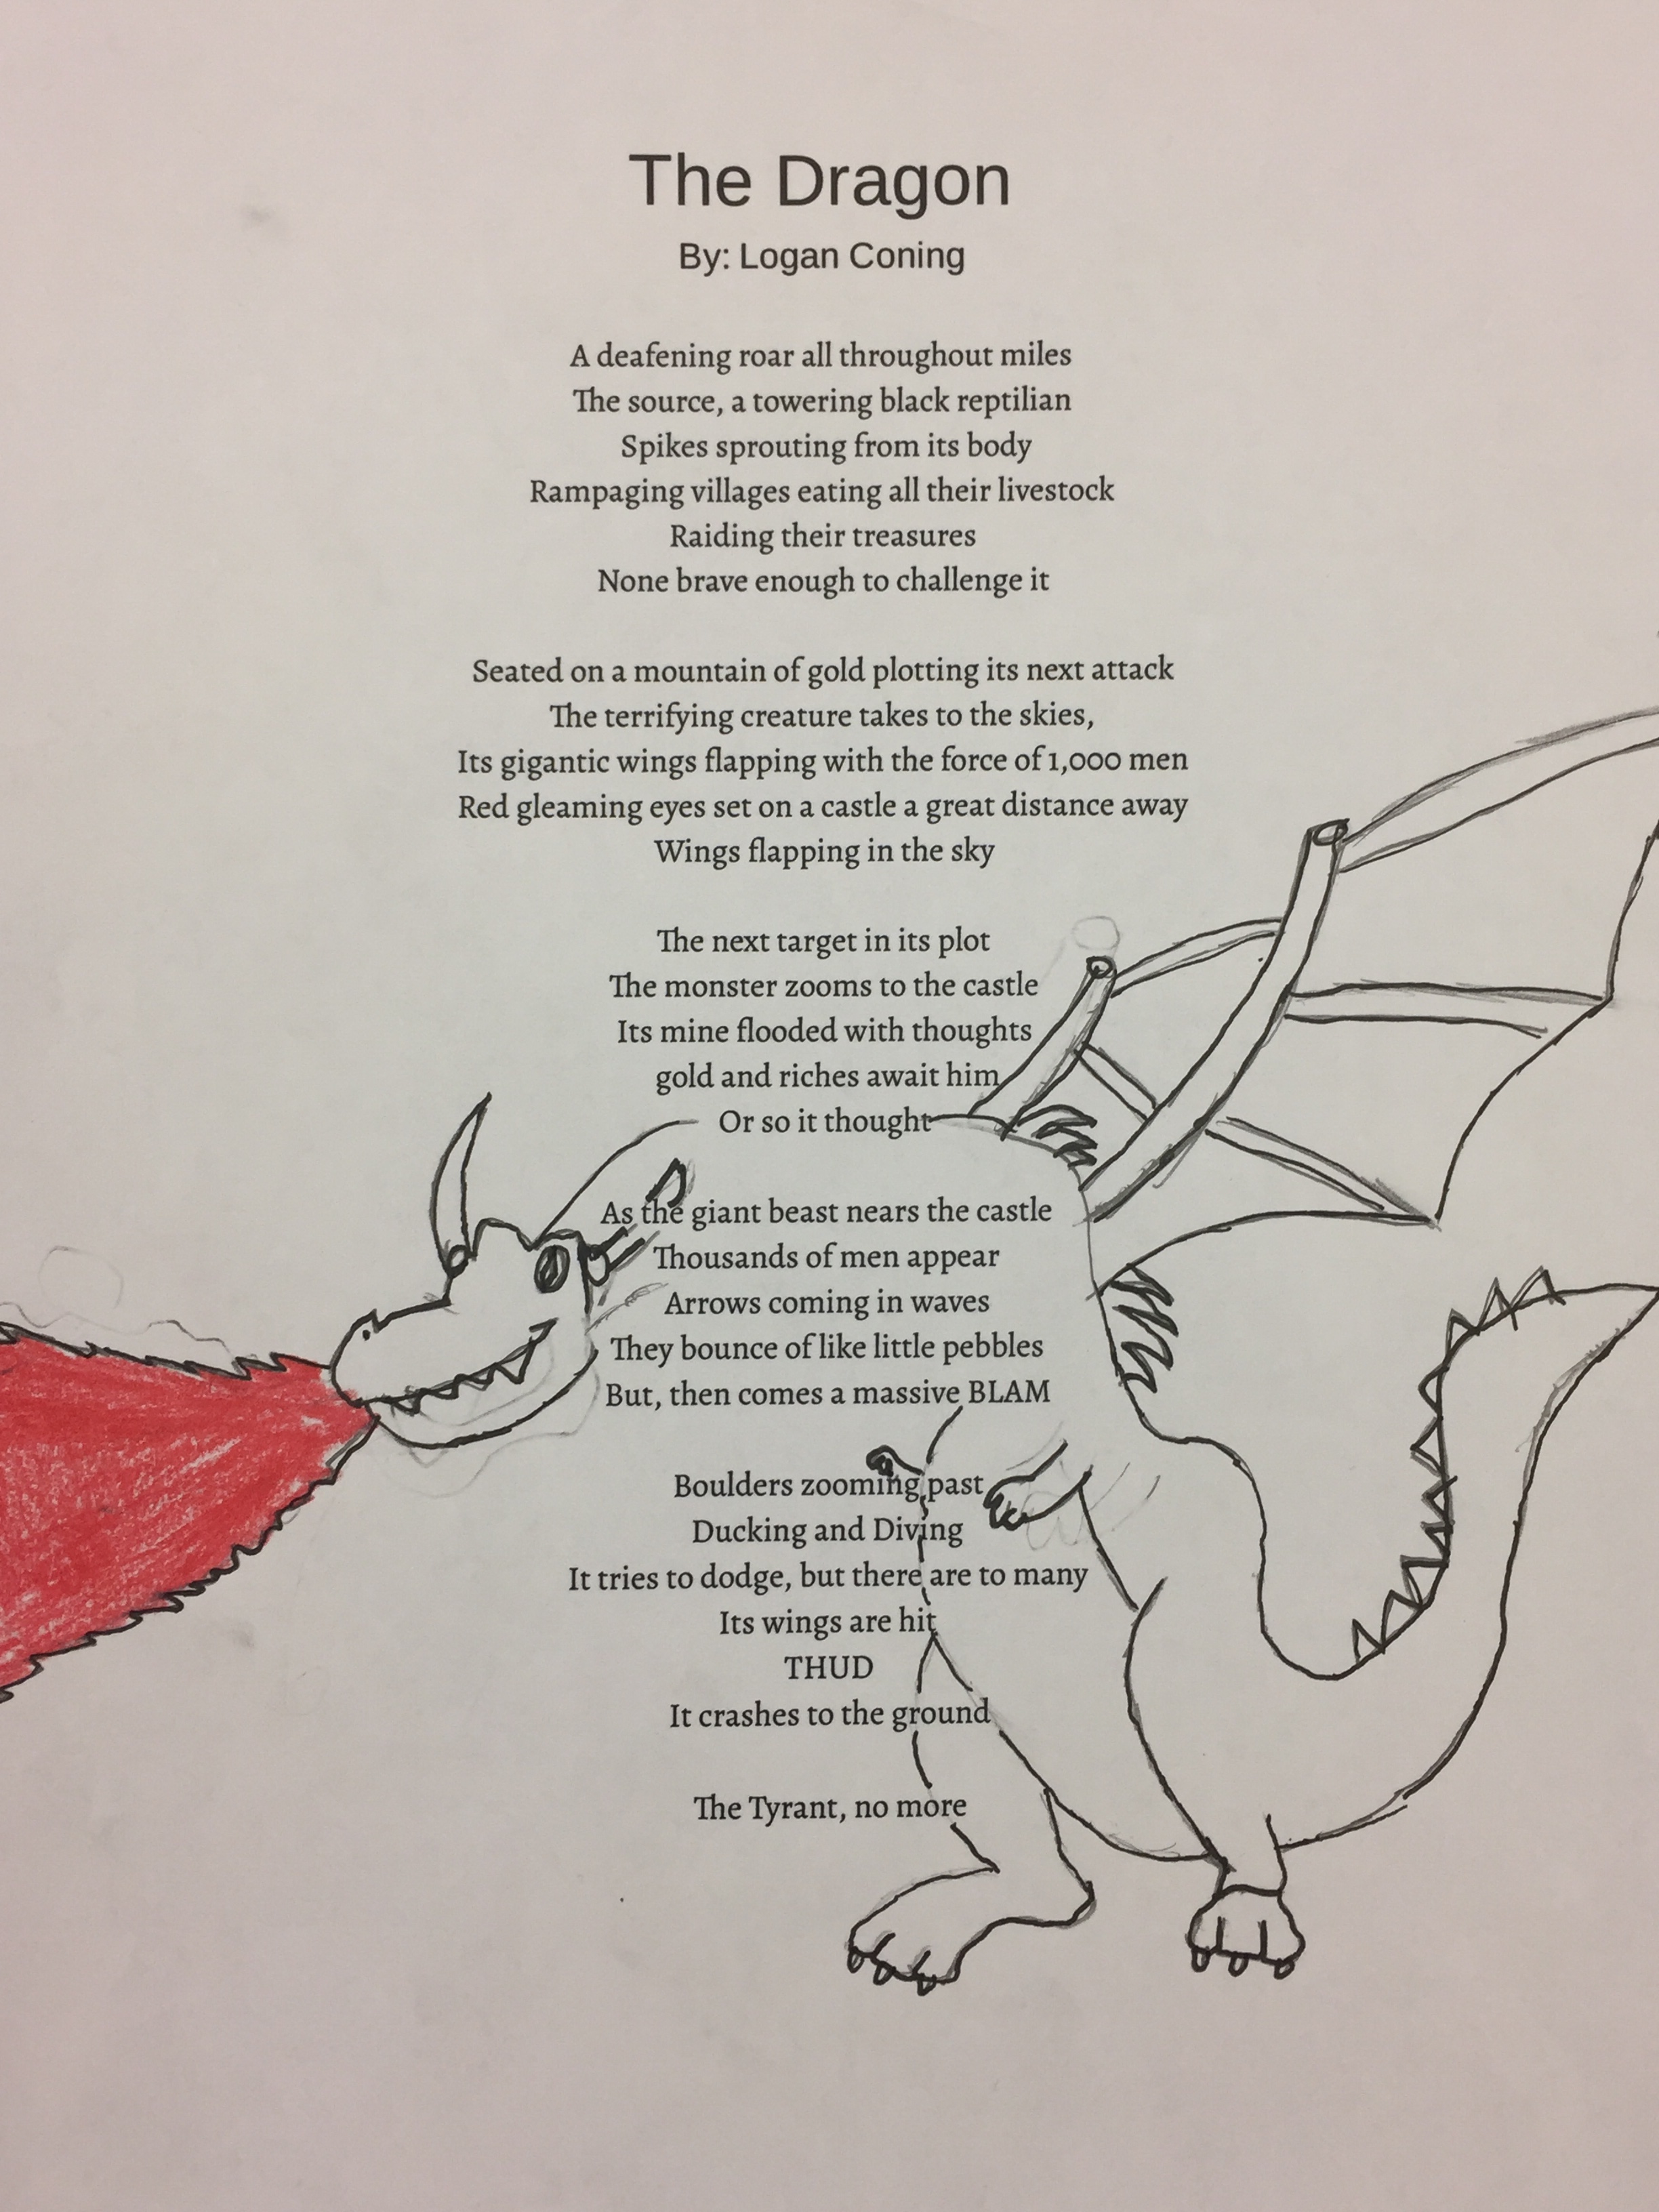 The Dragon
By: Logan Coning
A deafening roar all throughout miles
The source, a towering black reptilian
Spikes sprouting from its body
Rampaging villages eating all their livestock
Raiding their treasures
None brave enough to challenge it
Seated on a mountain of gold plotting its next attack
The terrifying creature takes to the skies,
Its gigantic wings flapping with the force of 1,000 men
Red gleaming eyes set on a castle a great distance away
Wings flapping in the sky
The next target in its plot
The monster zooms to the castle
Its mine flooded with thoughts
gold and riches await him
Or so it thought
As the giant beast nears the castle
Thousands of men appear
Arrows coming in waves
They bounce of like little pebbles
But, then comes a massive BLAM
Boulders zooming past
Ducking and Diving
It tries to dodge, but there are to many
Its wings are hit
THUD
It crashes to the ground
The Tyrant, no more